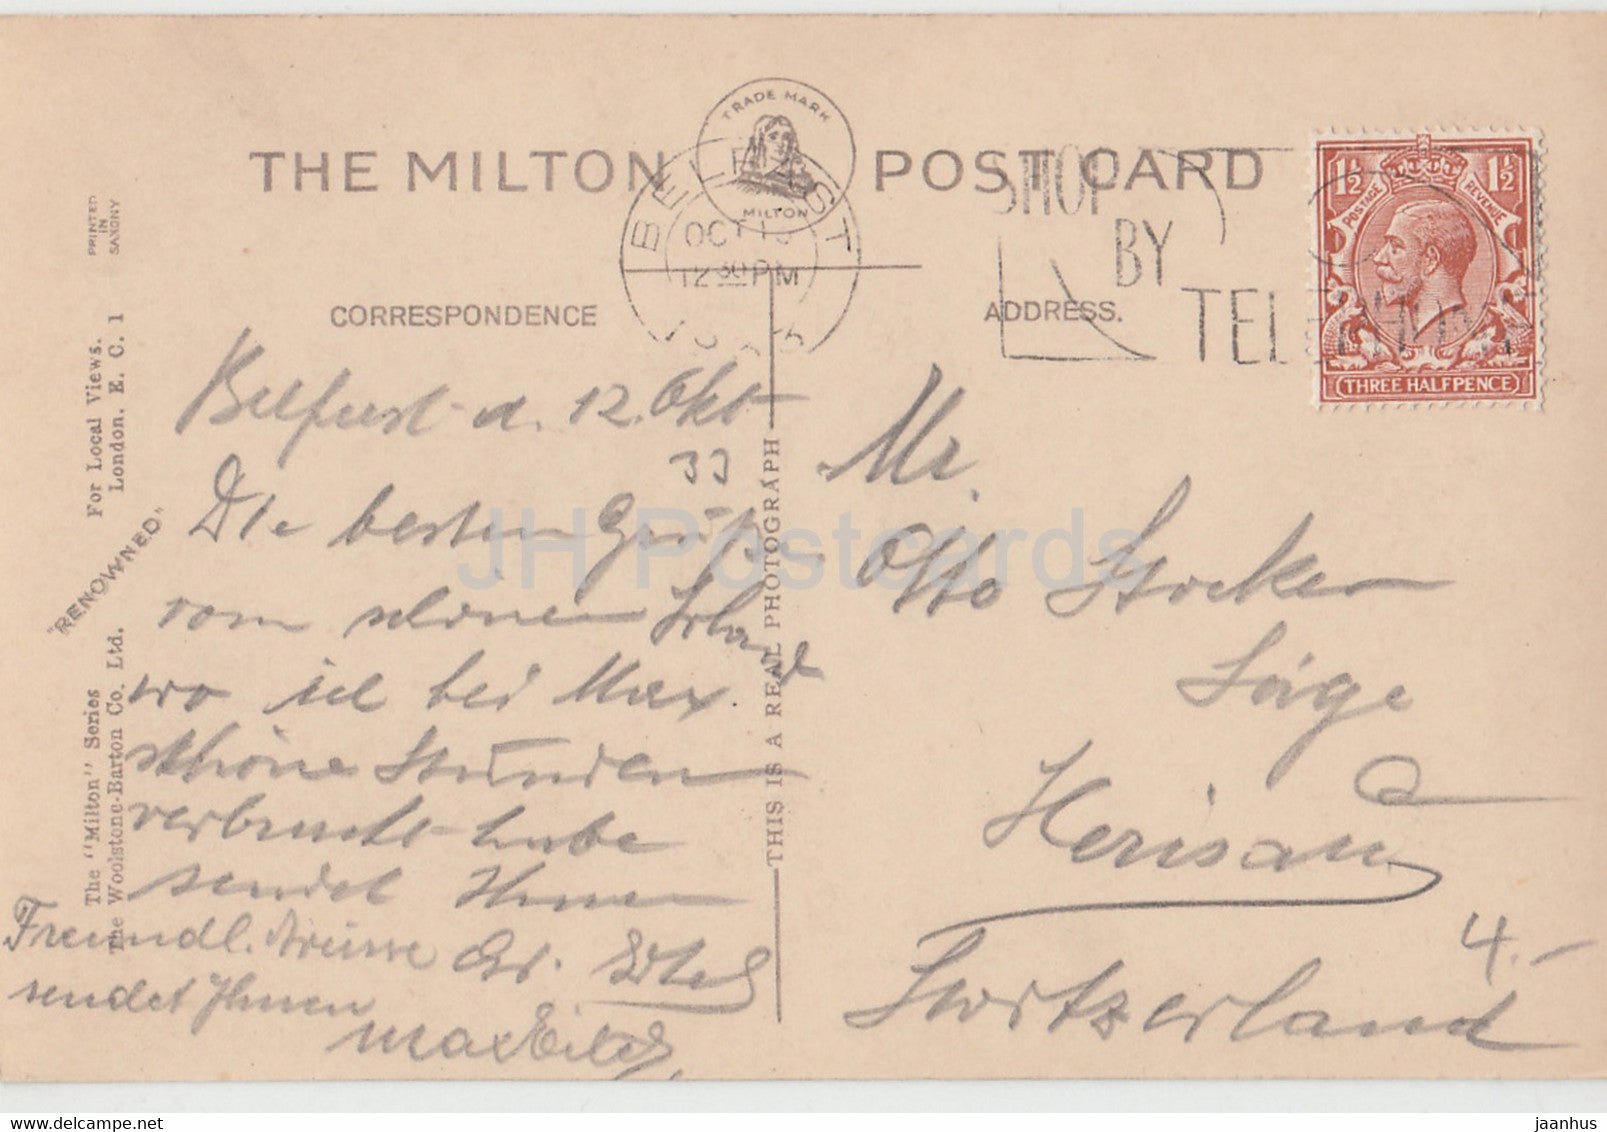 THE MILTON POST CARD
TRADE MARK
MILTON
BELFAST
OCT
12 30 PM
SHOP
BY
TELEPHONE
1½ 1½
POSTAGE REVENUE
THREE HALFPENCE
CORRESPONDENCE
ADDRESS.
PRINTED
IN
SAXONY
For Local Views.
London. E. C. 1
"RENOWNED"
The "Milton" Series
The Woolstone-Barton Co. Ltd.
THIS IS A REAL PHOTOGRAPH
Belfast d. 12. Okt
33
Die besten Grüße
vom schönen Irland
wo ich bei Max
schöne Stunden
verbracht habe
sendet Ihnen
Freundl. Grüsse
sendet Ihnen
Max
Mr.
Otto Stocker
Säge
Herisau
Switzerland
4.-
JH Postcards
delcampe.net
jaanhus